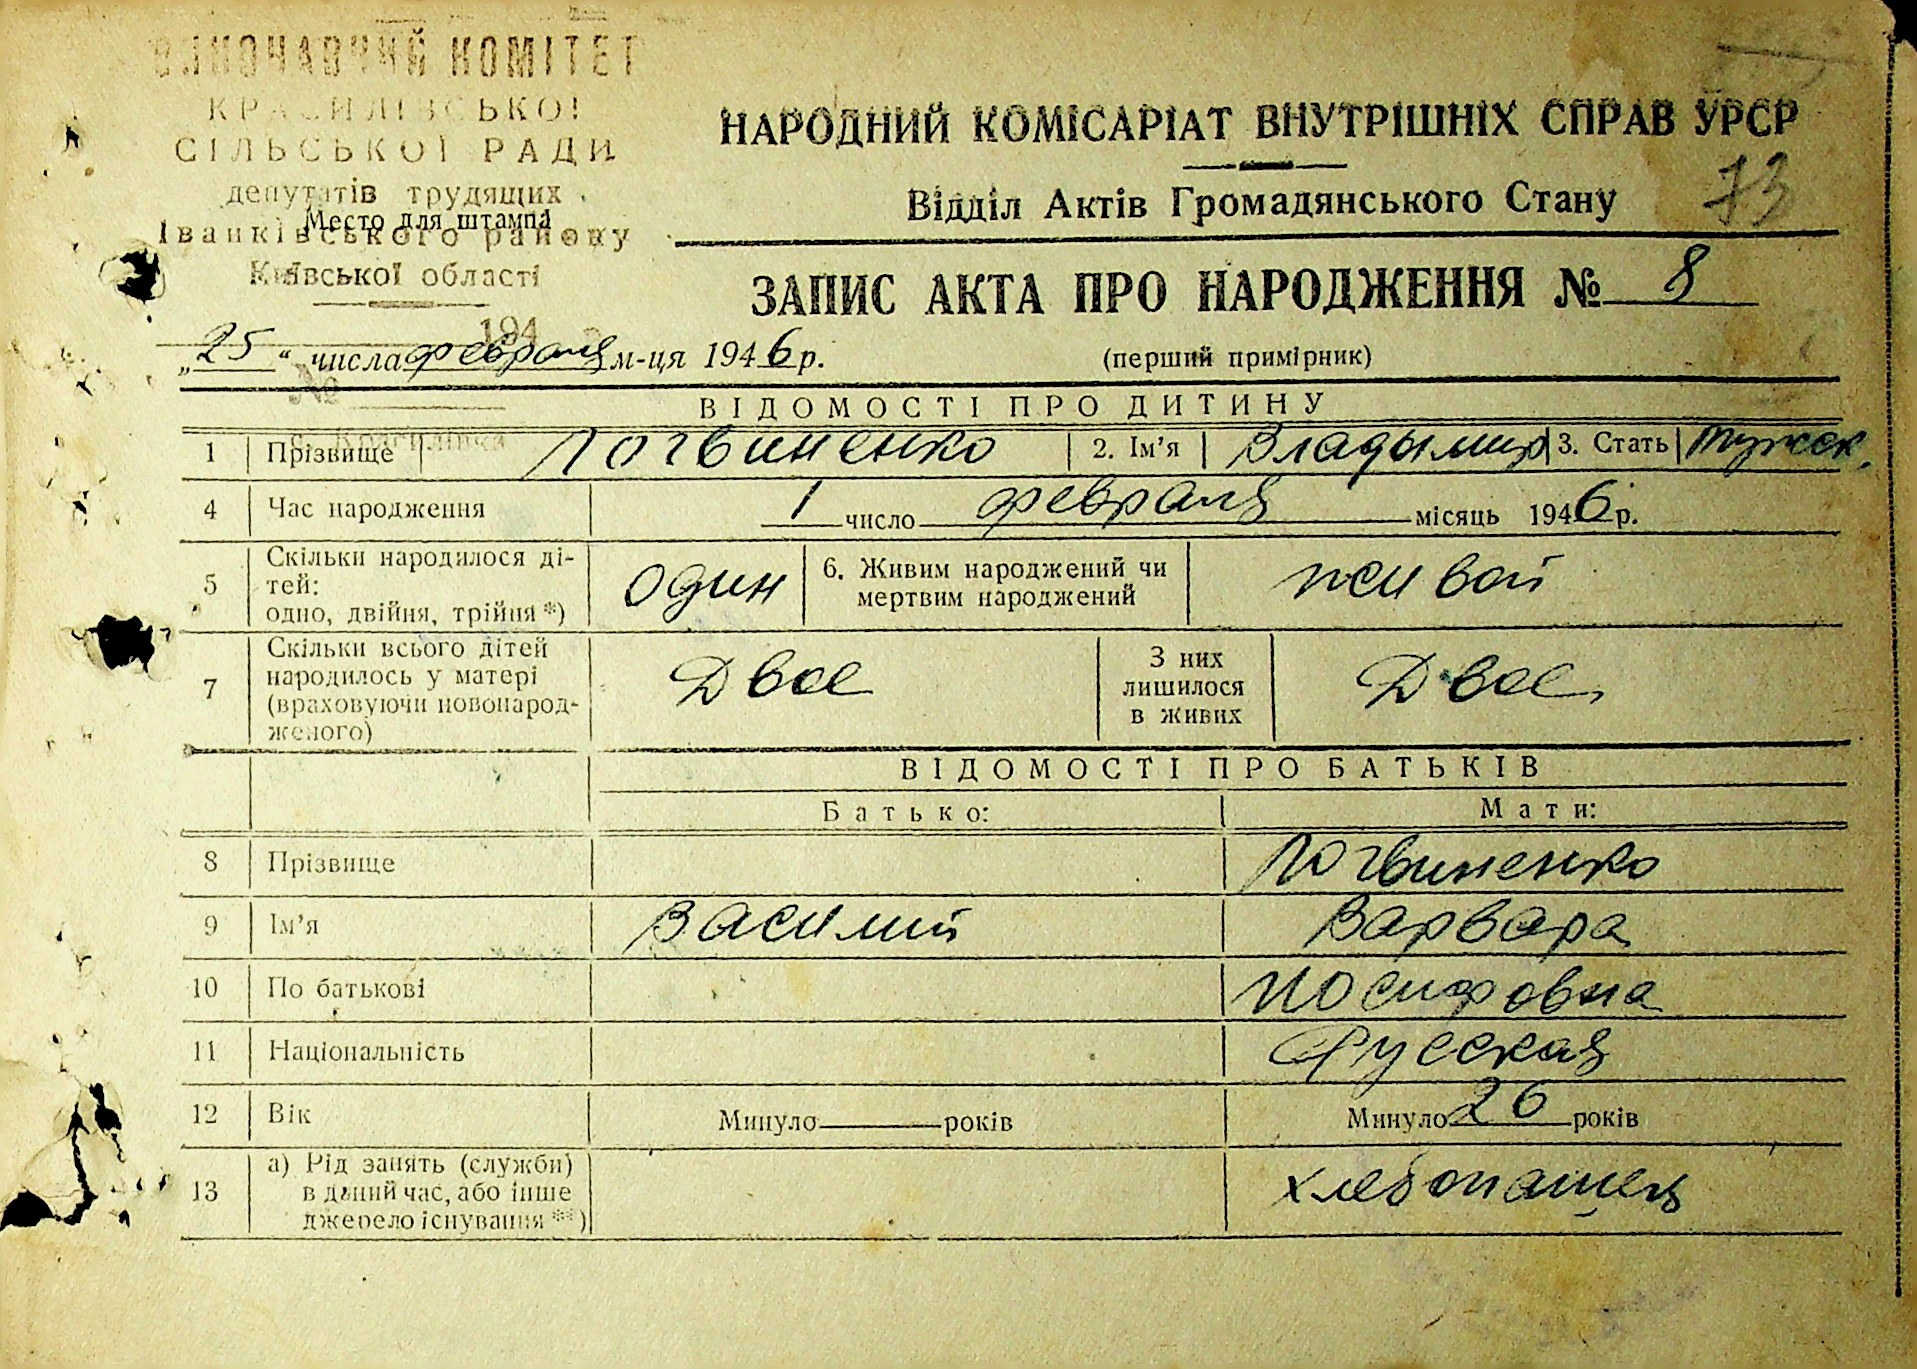 ВИКОНАВЧИЙ КОМІТЕТ
КРАСИЛІВСЬКОЇ
СІЛЬСЬКОЇ РАДИ
депутатів трудящих
Место для штампа
Іванківського району
Київської області
194
№
с. Красилівка
НАРОДНИЙ КОМІСАРІАТ ВНУТРІШНІХ СПРАВ УРСР
Відділ Актів Громадянського Стану
73
ЗАПИС АКТА ПРО НАРОДЖЕННЯ № 8
„25“ числа февраля м-ця 1946 р.
(перший примірник)
ВІДОМОСТІ ПРО ДИТИНУ
1 Прізвище Логвиненко 2. Ім’я Владымир 3. Стать Мужск.
4 Час народження 1 число февраля місяць 1946 р.
5 Скільки народилося ді-
тей:
одно, двійня, трійня *) один 6. Живим народжений чи
мертвим народжений живой
7 Скільки всього дітей
народилось у матері
(враховуючи новонарод-
женого) Двое З них
лишилося
в живих Двое
ВІДОМОСТІ ПРО БАТЬКІВ
Батько: Мати:
8 Прізвище Логвиненко
9 Ім’я Василий Варвара
10 По батькові Иосифовна
11 Національність Русская
12 Вік Минуло років Минуло 26 років
13 а) Рід занять (служби)
в даний час, або інше
джерело існування **) хлебопашец